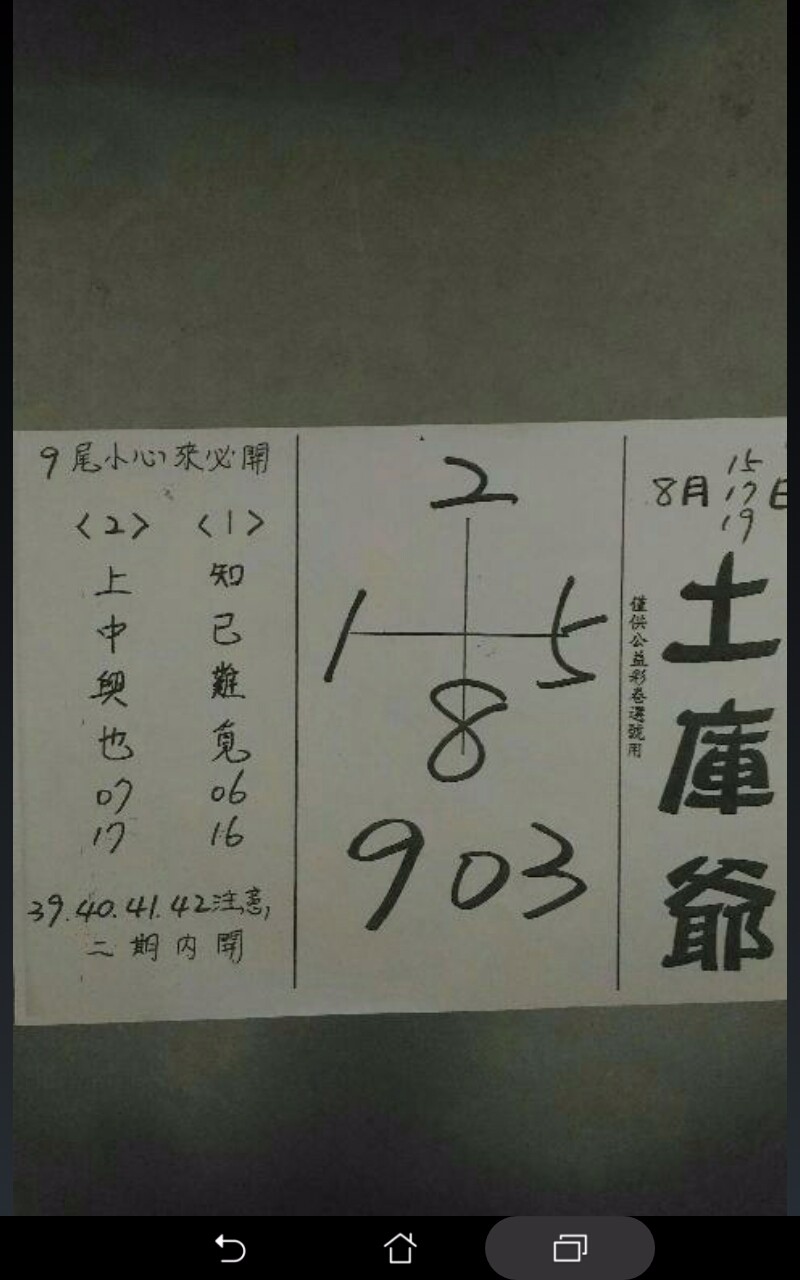 8月 15 17 19 日
土庫爺
僅供公益彩卷選號用
2
1 5
8
903
9尾小心來必開
〈1〉
知己難覓
06
16
〈2〉
上中興也
07
17
39.40.41.42注意,
二期内開